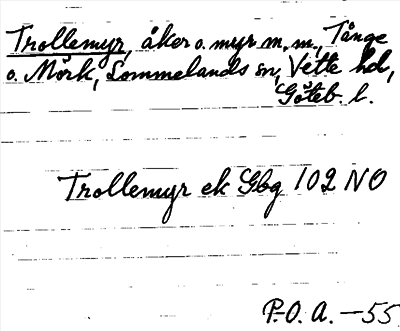 Trollemyr, åker o. myr m.m., Tånge
o. Mörk, Lommelands sn, Vette hd,
Göteb. l.
Trollemyr ek Gbg 102 NO
P.O.A. —55